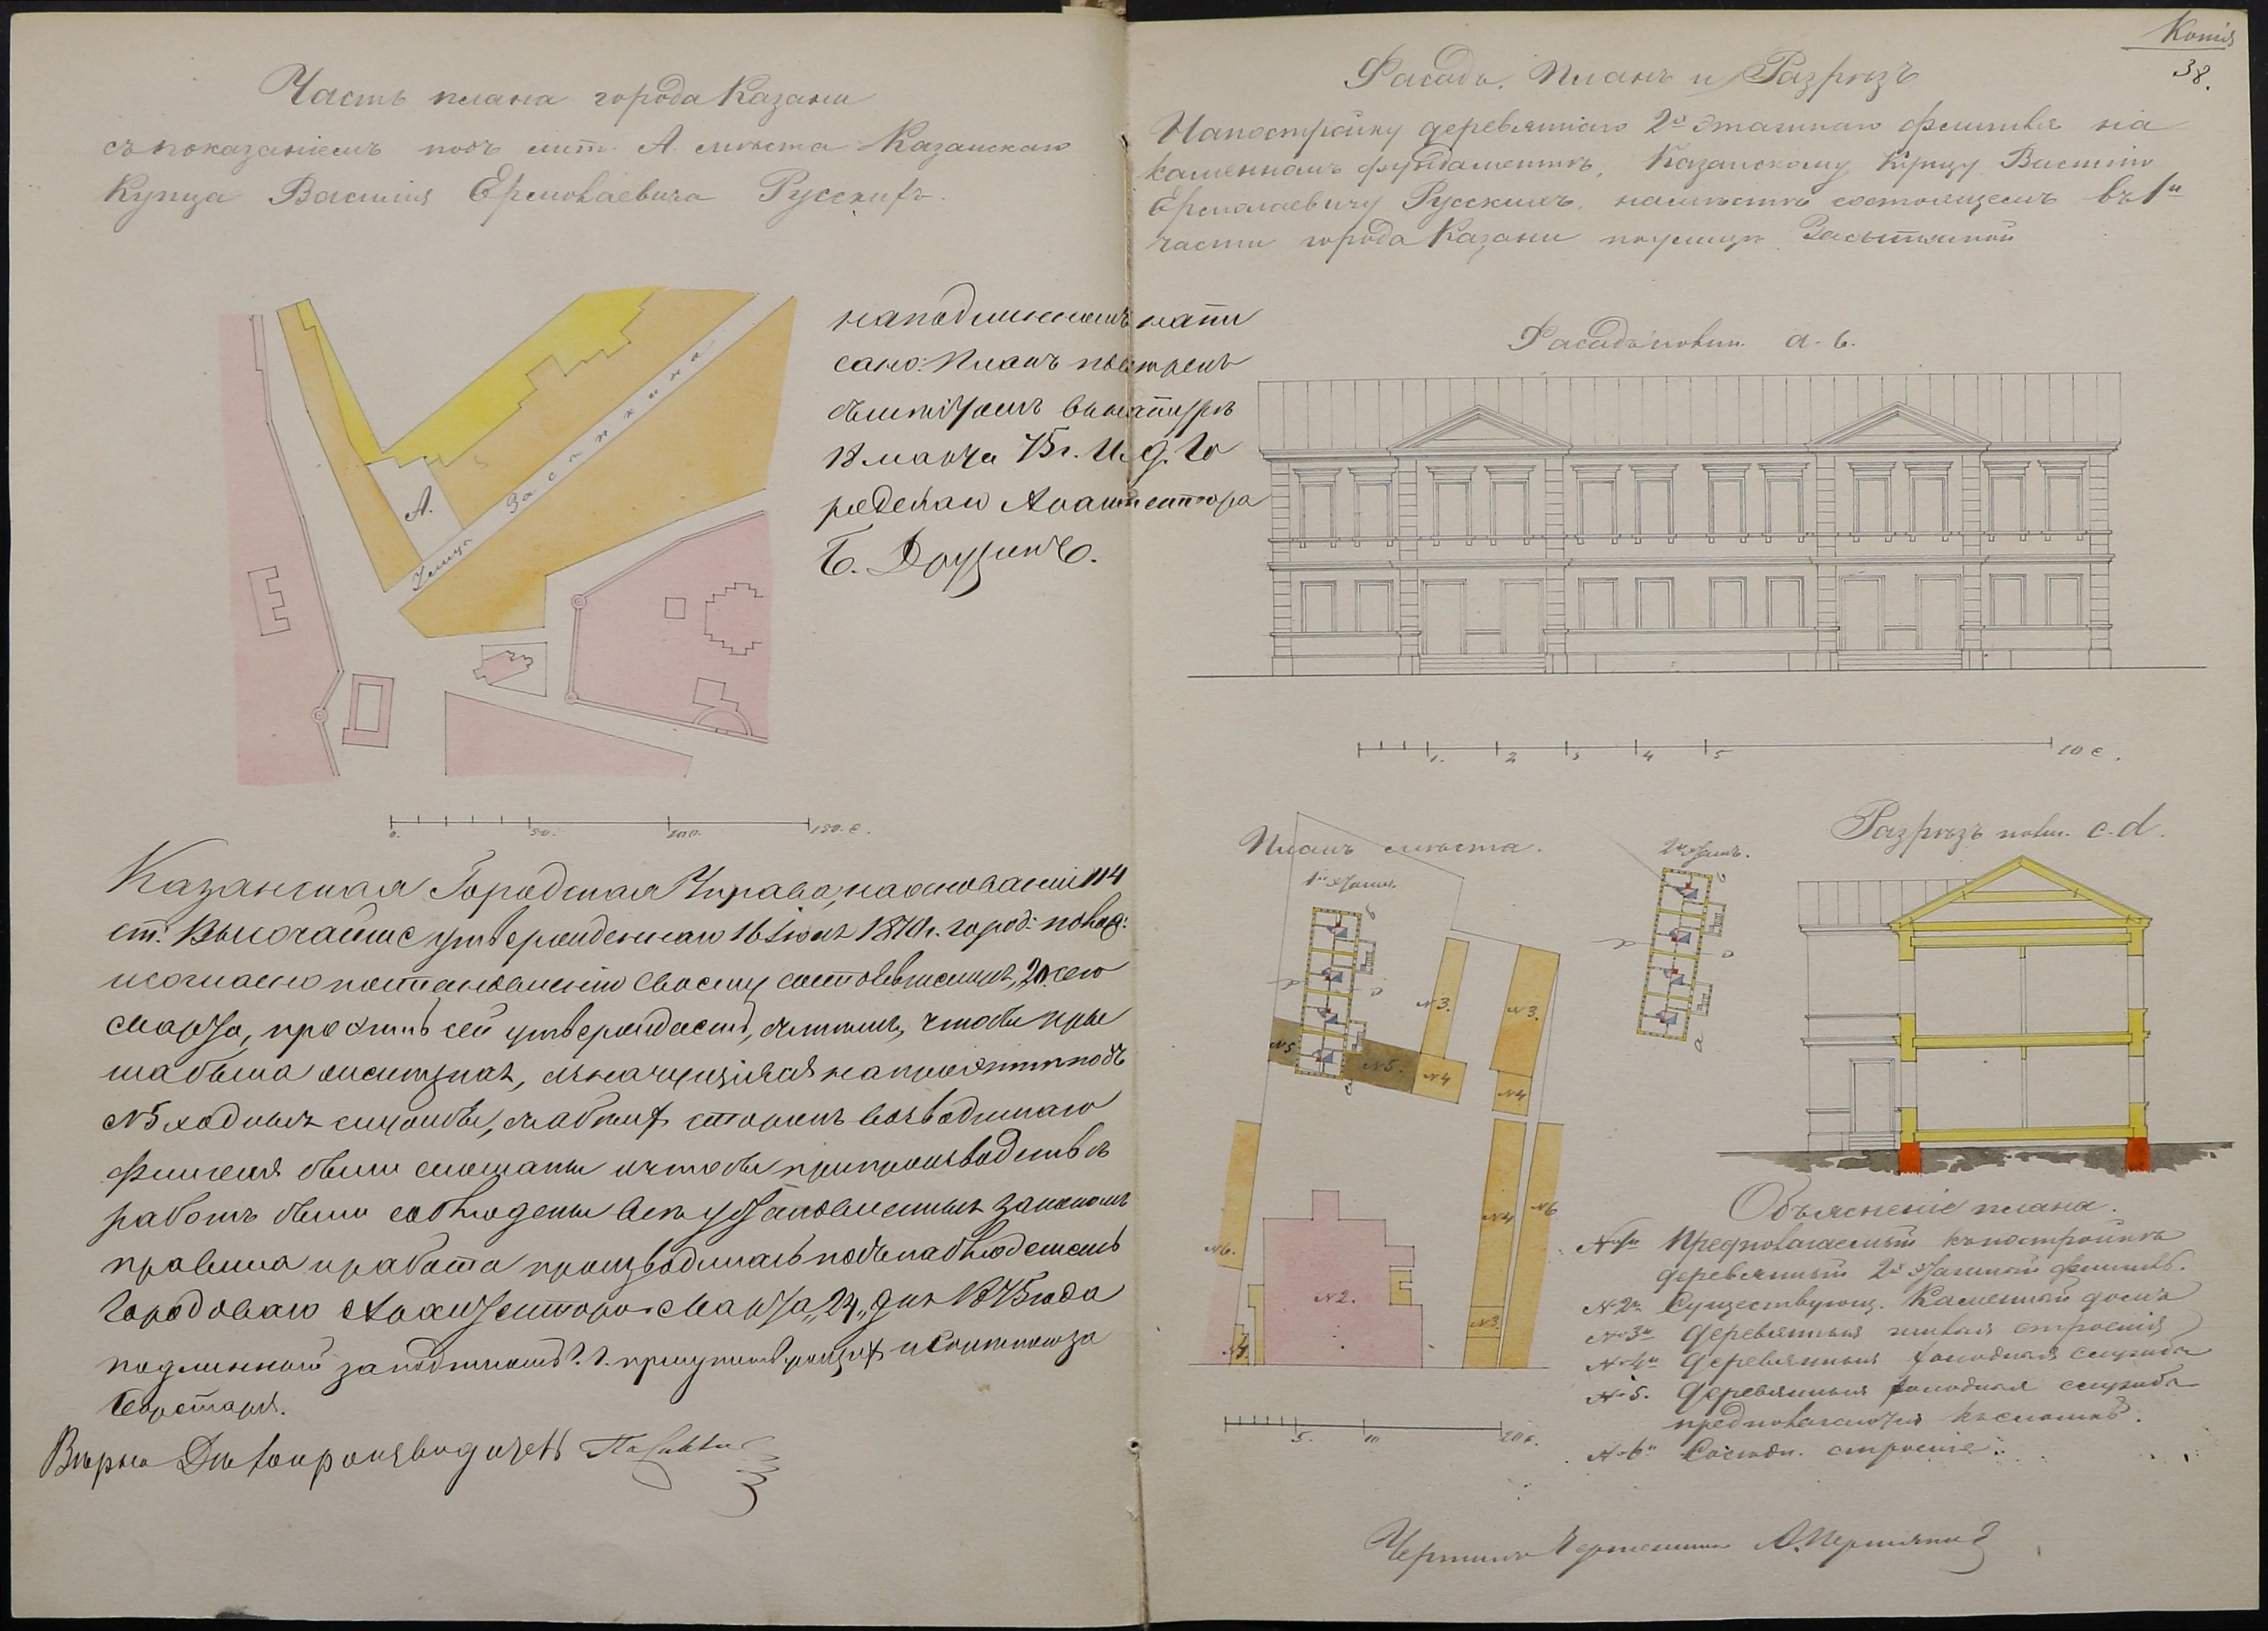 Часть плана города Казани
съ показаніемъ подъ лит. А. мѣста Казанскаго
Купца Василія Ермолаевича Русскихъ.
Улица Засыпкина
А.
0. 50. 100. 150. с.
на подлинномъ напи
сано: Планъ
въ натурѣ
18 марта 75 г. И. д. Го
родскаго Архитектора
Казанская Городская Управа, на основаніи 114
ст. Высочайше утвержденнаго 16 Іюня 1870 г. город. полож:
и согласно постановленію своему состоявшемуся, 20 сего
Марта, проэктъ сей утверждаетъ, съ тѣмъ, чтобы кры
ша была желѣзная, значущіяся на проэктѣ подъ
№ 5 холодныя службы, съ обѣихъ сторонъ возводимаго
флигеля были сломаны и чтобы при производствѣ
работъ были соблюдены всѣ установленныя закономъ
правила и работа производилась подъ наблюденіемъ
Городоваго Архитектора. Марта „24„ дня 1875 года
подлинный за подписомъ г. г. присутствующихъ и скрѣпою за
Секретаря.
Вѣрно Дѣлопроизводитель
Копія
38.
Фасадъ, Планъ и Разрѣзъ
На постройку деревяннаго 2хъ этажнаго флигеля на
каменномъ фундаментѣ, Казанскому Купцу Василію
Ермолаевичу Русскихъ, на мѣстѣ состоящемъ въ 1й
части города Казани по улицѣ Засыпкиной
Фасадъ по лин. а. b.
1. 2 3 4 5 10 с.
Планъ мѣста.
1й этаж.
2й этажъ.
Разрѣзъ по лин. c. d.
№ 3.
№ 3.
№ 5
№ 5.
№ 4
№ 4
№ 4
№ 6
№ 6.
№ 2.
№ 3.
5. 10 20 с.
Объясненіе плана.
№ 1й Предполагаемый къ постройкѣ
деревянный 2хъ этажный флигель.
№ 2й Существующ. Каменный домъ
№ 3й деревянныя жилыя строенія
№ 4й деревянныя холодныя службы
№ 5. деревянныя холодныя службы
предполагаются къ сломкѣ.
№ 6й Сосѣдн. строенія.
Чертилъ Чертежникъ А. Пермяковъ